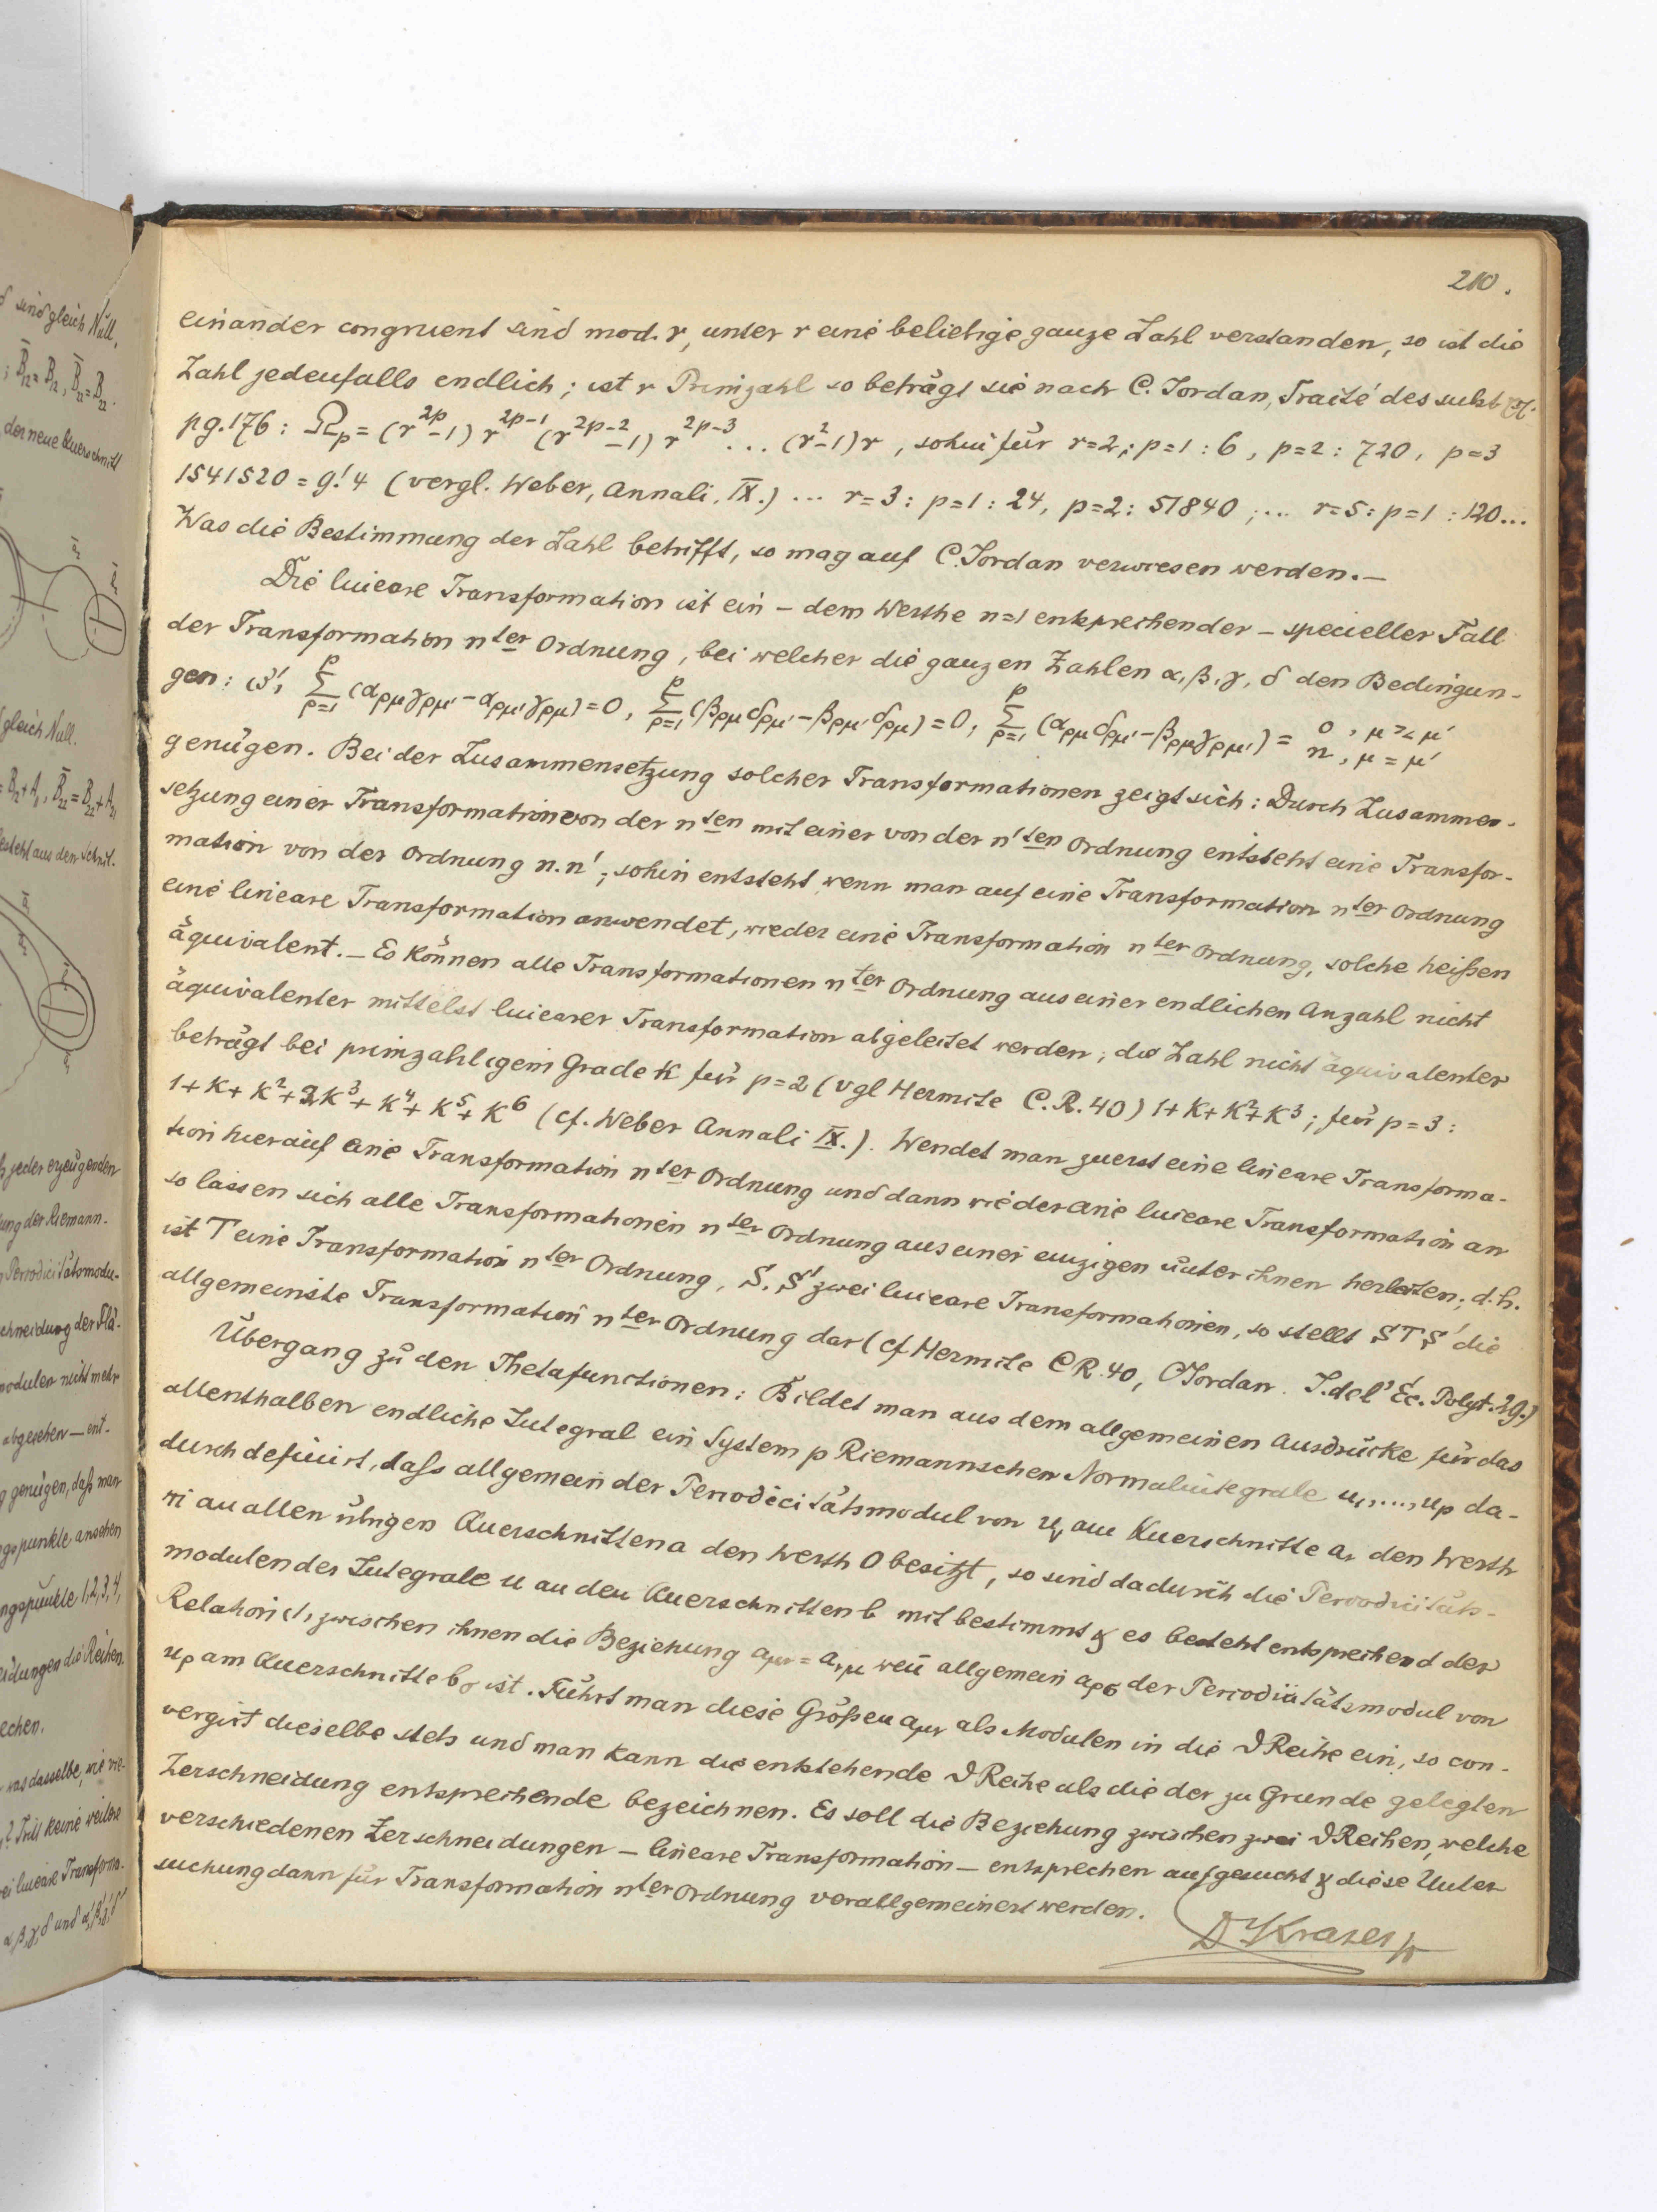 210.
einander congruent sind mod. r, unter r eine beliebige ganze Zahl verstanden, so ist die
Zahl jedenfalls endlich; ist r Primzahl so beträgt sie nach C. Jordan, Traité des subst
pg. 176: Ω_p = (r^{2p}-1) r^{2p-1} (r^{2p-2}-1) r^{2p-3} ... (r^2-1) r, sohin für r=2; p=1 : 6, p=2 : 720, p=3
1541520 = 9! 4 (vergl. Weber, Annali, IX.) ... r=3: p=1 : 24, p=2: 51840 ; ... r=5: p=1 : 120...
Was die Bestimmung der Zahl betrifft, so mag auf C. Jordan verwiesen werden. —
Die lineare Transformation ist ein – dem Werthe n=1 entsprechender – specieller Fall
der Transformation nter Ordnung, bei welcher die ganzen Zahlen α, β, γ, δ den Bedingun-
gen: (3', Σ_{ρ=1}^{p} (α_{ρμ} γ_{ρμ'} - α_{ρμ'} γ_{ρμ}) = 0, Σ_{ρ=1}^{p} (β_{ρμ} δ_{ρμ'} - β_{ρμ'} δ_{ρμ}) = 0, Σ_{ρ=1}^{p} (α_{ρμ} δ_{ρμ'} - β_{ρμ} γ_{ρμ'}) = 0, μ ≷ μ' n, μ = μ'
genügen. Bei der Zusammensetzung solcher Transformationen zeigt sich: Durch Zusammen-
setzung einer Transformation von der nten mit einer von der n'ten Ordnung entsteht eine Transfor-
mation von der Ordnung n.n'; sohin entsteht, wenn man auf eine Transformation nter Ordnung
eine lineare Transformation anwendet, wieder eine Transformation nter Ordnung, solche heißen
äquivalent. – Es können alle Transformationen nter Ordnung aus einer endlichen Anzahl nicht
äquivalenter mittelst linearer Transformation abgeleitet werden; die Zahl nicht äquivalenter
beträgt bei primzahligem Grade k für p=2 (vgl Hermite C.R. 40) 1+k+k^2+k^3; für p=3:
1+k+k^2+2k^3+k^4+k^5+k^6 (cf. Weber Annali IX.). Wendet man zuerst eine lineare Transforma-
tion hierauf eine Transformation nter Ordnung und dann wieder eine lineare Transformation an
so lassen sich alle Transformationen nter Ordnung aus einer einzigen unter ihnen herleiten; d.h.
ist T eine Transformation nter Ordnung, S, S' zwei lineare Transformationen, so stellt STS' die
allgemeinste Transformation nter Ordnung dar (cf Hermite CR. 40, C Jordan. J. de l'Éc. Polyt. 29.)
Übergang zu den Thetafunctionen: Bildet man aus dem allgemeinen Ausdrucke für das
allenthalben endliche Integral ein System p Riemannscher Normalintegrale u_1, ..., u_p da-
durch definirt, daſs allgemein der Periodicitätsmodul von u_ν am Querschnitte a_ν den Werth
πi an allen übrigen Querschnitten a den Werth 0 besitzt, so sind dadurch die Periodicitäts-
modulen der Integrale u an den Querschnitten b mit bestimmt & es besteht entsprechend der
Relation (1, zwischen ihnen die Beziehung a_{μν} = a_{νμ} weñ allgemein a_{ρσ} der Periodicitätsmodul von
u_ρ am Querschnitte b_σ ist. Führt man diese Größen a_{μν} als Modulen in die ϑ Reihe ein, so con-
vergirt dieselbe stets und man kann die entstehende ϑ Reihe als die der zu Grunde gelegten
Zerschneidung entsprechende bezeichnen. Es soll die Beziehung zwischen zwei ϑ Reihen, welche
verschiedenen Zerschneidungen – lineare Transformation – entsprechen aufgesucht & diese Unter
suchung dann für Transformation nter Ordnung verallgemeinert werden.
Dr Krazer
δ sind gleich Null.
; B̄_{12} = B_{12}, B̄_{22} = B_{22}.
der neue Querschnitt
gleich Null.
= B_{12} + A_1, B̄_{22} = B_{22} + A_{21}
besteht aus dem Schnit-
jeder erzeugenden
ung der Riemann-
Periodicitätsmodu-
chneidung der Flä-
modulen nicht mehr
abgesehen – ent-
genügen, daſs man
gspunkte ansehen
ngspunkte 1, 2, 3, 4,
dungen die Reihen
echen.
was dasselbe, wie
? Tritt keine weitere
ei lineare Transforma-
α, β, γ, δ und α', β', γ', δ'